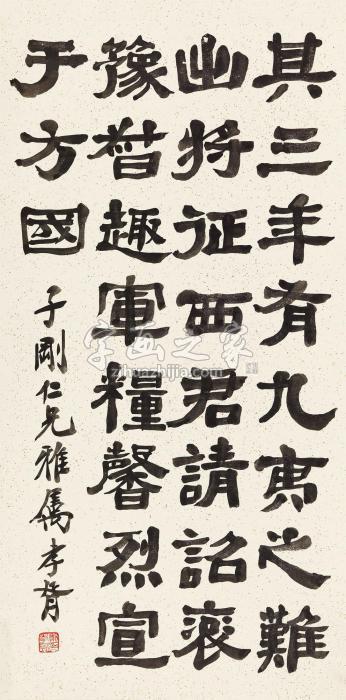 其三年有九夷之難
幽将征西君請詔褒
豫督趣軍糧馨烈宣
于方國
子剛仁兄雅属 孝胥
字画之家
www.zihuazhijia.com